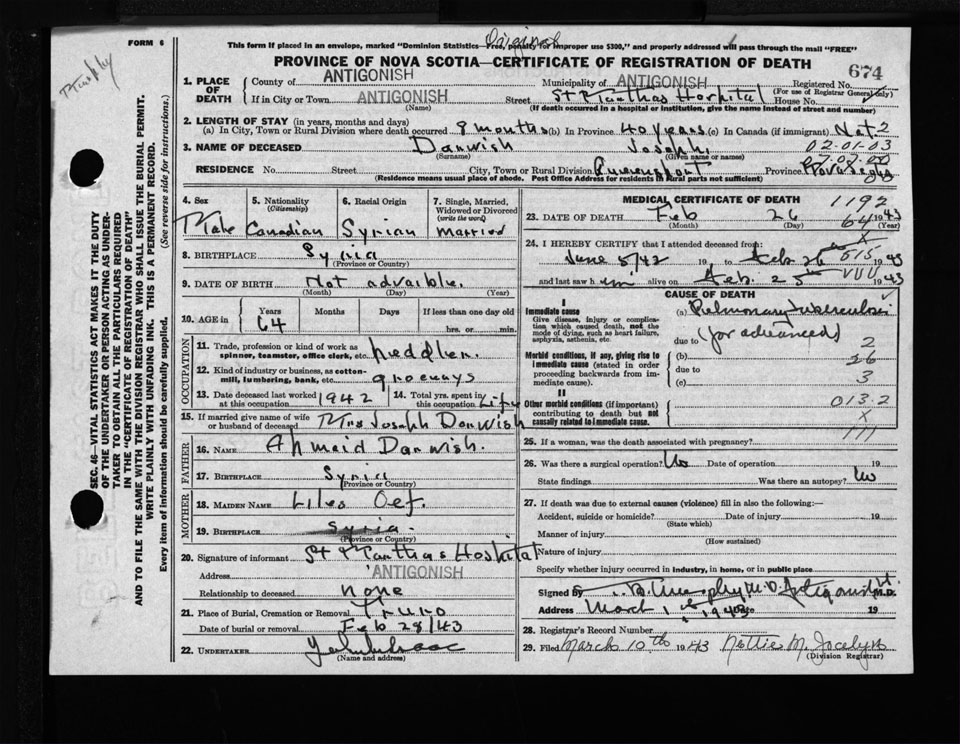 FORM 6
Original
This form if placed in an envelope, marked "Dominion Statistics—Free, penalty for improper use $300," and properly addressed will pass through the mail "FREE"
PROVINCE OF NOVA SCOTIA—CERTIFICATE OF REGISTRATION OF DEATH
Murphy
674
1. PLACE OF DEATH County of ANTIGONISH Municipality of ANTIGONISH Registered No.
(For use of Registrar General only)
If in City or Town ANTIGONISH Street St Marthas Hospital House No.
(Name) (If death occurred in a hospital or institution, give the name instead of street and number)
2. LENGTH OF STAY (in years, months and days)
(a) In City, Town or Rural Division where death occurred 8 months (b) In Province 40 years (c) In Canada (if immigrant) Nat. 2
02-01-03
3. NAME OF DECEASED Darwish Joseph.
(Surname) (Given name or names)
RESIDENCE No. Street City, Town or Rural Division Province Nova Scotia
(Residence means usual place of abode. Post Office Address for residents in Rural parts not sufficient)
4. Sex Male
5. Nationality (Citizenship) Canadian
6. Racial Origin Syrian
7. Single, Married, Widowed or Divorced (write the word) Married
8. BIRTHPLACE Syria
(Province or Country)
9. DATE OF BIRTH Not
(Month) (Day) (Year)
10. AGE in Years 64 Months Days If less than one day old
hrs. or min.
OCCUPATION
11. Trade, profession or kind of work as spinner, teamster, office clerk, etc. Peddler.
12. Kind of industry or business, as cotton-mill, lumbering, bank, etc.
13. Date deceased last worked at this occupation 1942 14. Total yrs. spent in this occupation Life
15. If married give name of wife or husband of deceased Mrs Joseph Darwish
FATHER
16. NAME Ahmeid Darwish.
17. BIRTHPLACE Syria
(Province or Country)
MOTHER
18. MAIDEN NAME
19. BIRTHPLACE Syria
(Province or Country)
20. Signature of informant St Marthas Hospital
Address ANTIGONISH
Relationship to deceased none
21. Place of Burial, Cremation or Removal Truro
Date of burial or removal Feb 28/43
22. UNDERTAKER
(Name and address)
MEDICAL CERTIFICATE OF DEATH
1192
23. DATE OF DEATH Feb 26 64 1943
(Month) (Day) (Year)
24. I HEREBY CERTIFY that I attended deceased from:
June 5/42 19 to Feb 26 1943
and last saw him alive on Feb. 25 1943
CAUSE OF DEATH
I
Immediate cause
Give disease, injury or complication which caused death, not the mode of dying, such as heart failure, asphyxia, asthenia, etc.
(a) Pulmonary tuberculosis
(far advanced)
due to 2
Morbid conditions, if any, giving rise to immediate cause (stated in order proceeding backwards from immediate cause).
(b) 26
due to 3
(c)
II
Other morbid conditions (if important) contributing to death but not causally related to immediate cause.
013.2
X
111
25. If a woman, was the death associated with pregnancy?
26. Was there a surgical operation? No Date of operation 19
State findings Was there an autopsy? No
27. If death was due to external causes (violence) fill in also the following:—
Accident, suicide or homicide? Date of injury 19
(State which)
Manner of injury
(How sustained)
Nature of injury
Specify whether injury occurred in industry, in home, or in public place
Signed by Murphy M.D. Antigonish M.D.
Address March 1st 1943 19
28. Registrar's Record Number
29. Filed March 10th 1943 Nettie M. Jocelyn
(Division Registrar)
SEC. 46—VITAL STATISTICS ACT MAKES IT THE DUTY
OF THE UNDERTAKER OR PERSON ACTING AS UNDER-
TAKER TO OBTAIN ALL THE PARTICULARS REQUIRED
IN THE "CERTIFICATE OF REGISTRATION OF DEATH"
AND TO FILE THE SAME WITH THE DIVISION REGISTRAR WHO SHALL ISSUE THE BURIAL PERMIT.
WRITE PLAINLY WITH UNFADING INK. THIS IS A PERMANENT RECORD.
Every item of information should be carefully supplied. (See reverse side for instructions.)